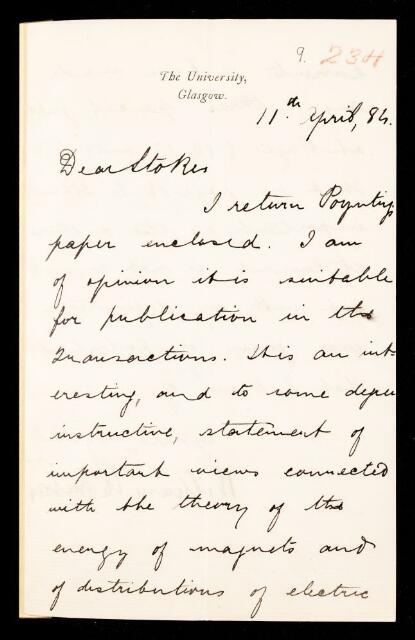 9.
234
The University,
Glasgow.
11th April, 84.
Dear Stokes
I return Poynting's
paper enclosed. I am
of opinion it is suitable
for publication in the
Transactions. It is an int-
eresting, and to some degree
instructive, statement of
important views connected
with the theory of the
energy of magnets and
of distributions of electric